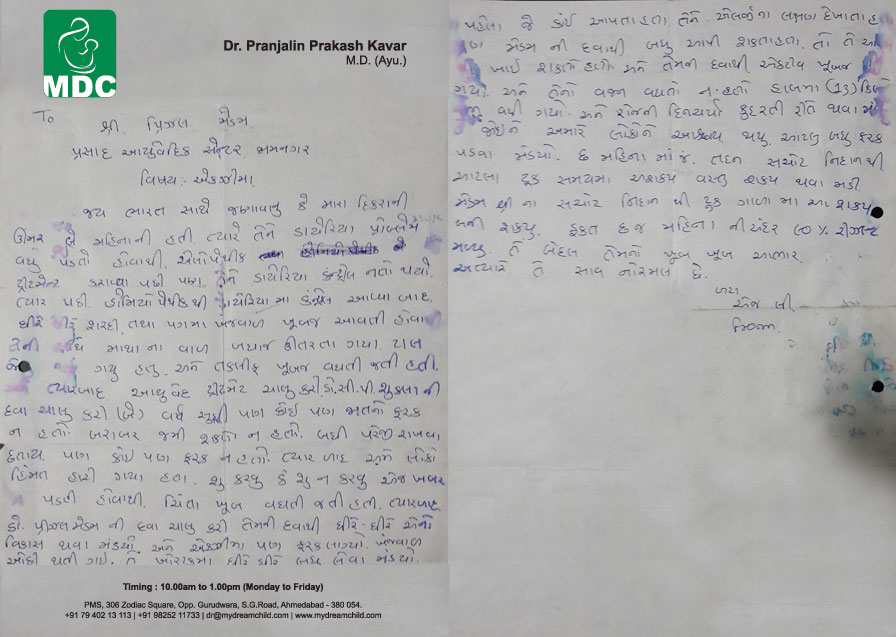 MDC
Dr. Pranjalin Prakash Kavar
M.D. (Ayu.)
To
શ્રી. પ્રિંજલ મેડમ,
પ્રસાદ આયુર્વેદિક સેન્ટર,
વિષય: એકઝીમા.
જય ભારત સાથે જણાવવાનુ કે મારા દિકરાની
ઉંમર બે મહિનાની હતી ત્યારે તેને ડાયેરિયા પ્રોબ્લેમ
વધુ પડતો હોવાથી, એલોપેથીક
ટ્રીટમેન્ટ કરાવ્યા પછી પણ તેને ડાયેરિયા કંન્ટ્રોલ નતો થયો.
ત્યાર પછી હોમિયોપેથીક થી ડાયેરિયા મા કંન્ટ્રોલ આવ્યા બાદ.
ધીરે ધીરે શરદી, તથા પગમા ખંજવાળ ખૂબજ આવતી હોવાથી
તેની માથા ના વાળ ઉતરતા ગયા. ટાલ
ગયુ હતુ. અને તકલીફ ખૂબજ વધતી જતી હતી.
ત્યારબાદ આયુર્વેદ ટ્રીટમેંટ ચાલુ કરી ડો. સી.પી. શુકલા ની
દવા ચાલુ કરી (બે) વર્ષ સુધી પણ કોઈ પણ જાતનો ફરક
ન હતો. બરાબર જમી શકતો ન હતો. બધી પરેજી રાખવા
છતાય પણ કોઈ પણ ફરક ન હતો. ત્યાર બાદ અમે લોકો
હિંમત હારી ગયા હતા. શુ કરવુ કે શુ ન કરવુ એજ ખબર
ન પડતી હોવાથી. ચિંતા ખૂબ વધતી જતી હતી. ત્યારબાદ
ડો. પ્રીંજલ મેડમ ની દવા ચાલુ કરી તેમની દવાથી ધીરે-ધીરે એનો
વિકાસ થવા મંડયો. અને એકઝીમા પણ ફરક લાગ્યો. ખંજવાળ
ઓછી થતી ગઈ. તે ખોરાકમા ધીરે ધીરે બધુ લેવા મંડયો.
Timing : 10.00am to 1.00pm (Monday to Friday)
PMS, 306 Zodiac Square, Opp. Gurudwara, S.G.Road, Ahmedabad - 380 054.
+91 79 402 13 113 | +91 98252 11733 | dr@mydreamchild.com | www.mydreamchild.com
પહેલા જે કંઈ આપતા હતા તેને એલર્જીના લક્ષણ દેખાતા હ
પણ મેડમ ની દવાથી બધુ આપી શકતા હતા. તો તે
ખાઈ શકતો હતો અને તેમની દવાથી એકટીવ ખૂબજ
ગયા. અને તેનો વજન વધતો ન હતો હાલમા (13) કિલો
વધી ગયો. અને રોજની દિનચર્યા કુદરતી રીતે થવા મં
જોઈને અમારે લોકોને આશ્ચર્ય થયુ. આટલુ બધુ ફરક
પડવા મંડયો. છ મહિના માં જ. તદન સચોટ નિદાન થી
આટલા ટૂક સમયમા અશકય વસ્તુ શકય થવા મંડી
મેડમ શ્રી ના સચોટ નિદાન થી ટૂક ગાળા મા આ શકય
બની શકયુ. ફકત છ જ મહિના ની અંદર % રીઝલ્ટ
મળ્યુ. તે બદલ તેમનો ખૂબ ખૂબ આભાર.
અત્યારે તે સાવ નોરમલ છે.
એજ લી.